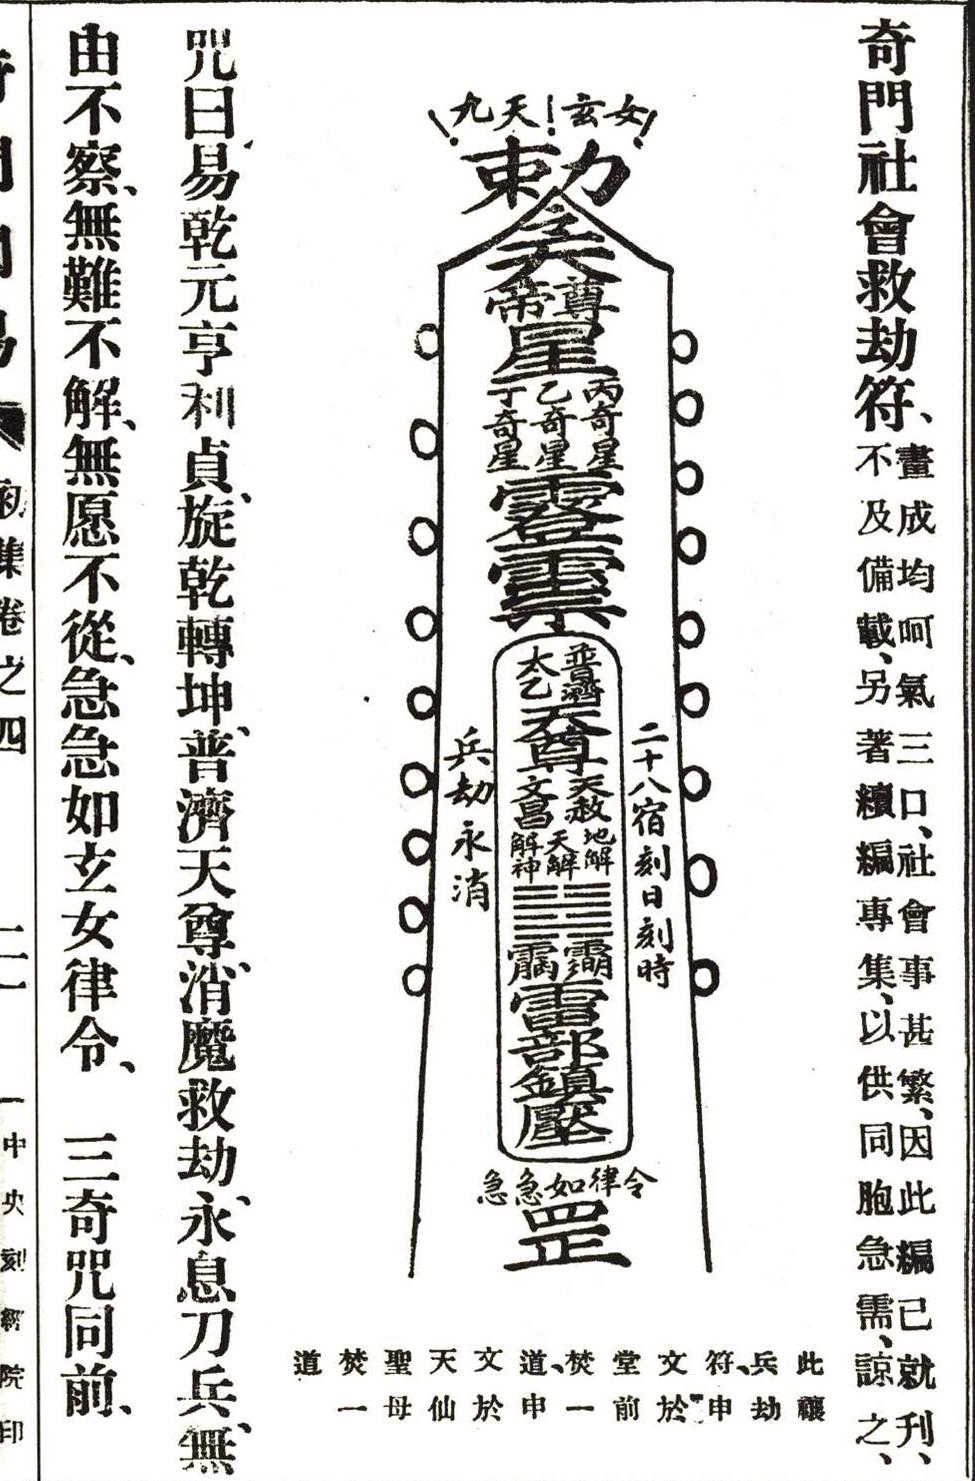 奇門社會救劫符、
畫成均呵氣三口、社會事甚繁、因此編已就刋、
不及備載、另著續編專集、以供同胞急需、諒之、
九天玄女
勅
尊帝
星
丙奇星
乙奇星
丁奇星
普濟
太乙
天尊
天赦
文昌
地解
天解
解神
雷部鎮壓
二十八宿刻日刻時
兵劫永消
急急如律令
罡
此禳
兵劫
符、申
文於
堂前
焚一
道、申
文於
天仙
聖母
焚一
道
咒曰、易乾元亨利貞、旋乾轉坤、普濟天尊、消魔救劫、永息刀兵、無
由不察、無難不解、無愿不從、急急如玄女律令、 三奇咒同前、
初集卷之四
二一
中央刻經院印